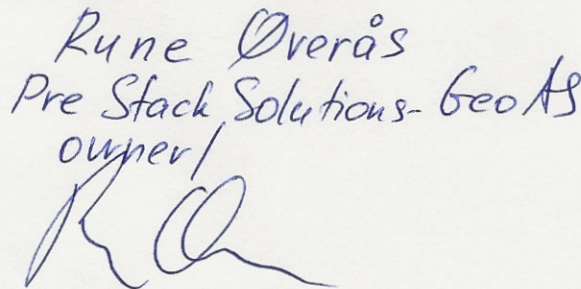 Rune Øverås
Pre Stack Solutions-Geo AS
owner/